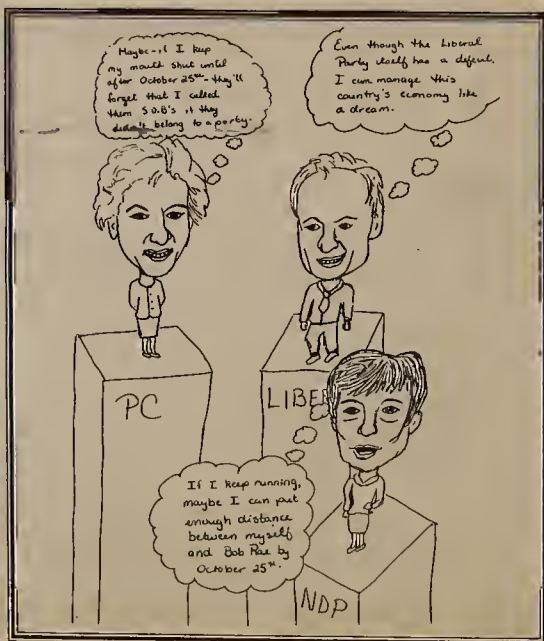 Maybe - if I keep
my mouth shut until
after October 25th - they'll
forget that I called
them S.O.B's if they
didn't belong to a party.
Even though the Liberal
Party itself has a deficit,
I can manage this
country's economy like
a dream.
PC
LIBER
If I keep running,
maybe I can put
enough distance
between myself
and Bob Rae by
October 25th.
NDP